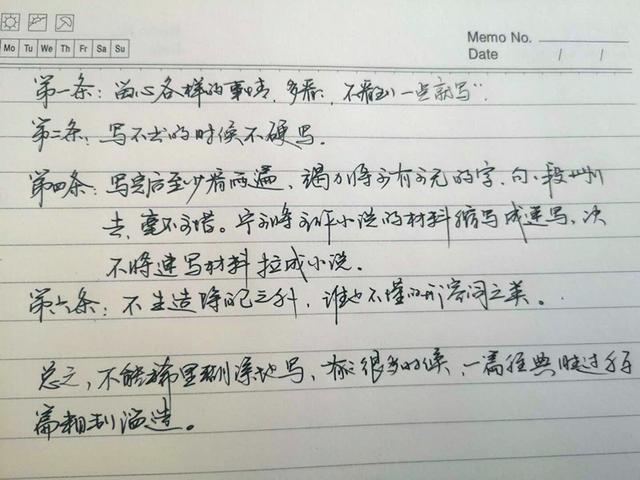 Memo No.
Mo Tu We Th Fr Sa Su
Date / /
第一条：留心各样的事情，多看，不看到一点就写"
第二条：写不出的时候不硬写。
第四条：写完后至少看两遍，竭力将可有可无的字、句、段删
去，毫不可惜。宁可将可作小说的材料缩写成速写，决
不将速写材料拉成小说。
第六条：不生造除自己之外，谁也不懂的形容词之类。
总之，不能稀里糊涂地写，有很多的时候，一篇经典胜过
篇粗制滥造。